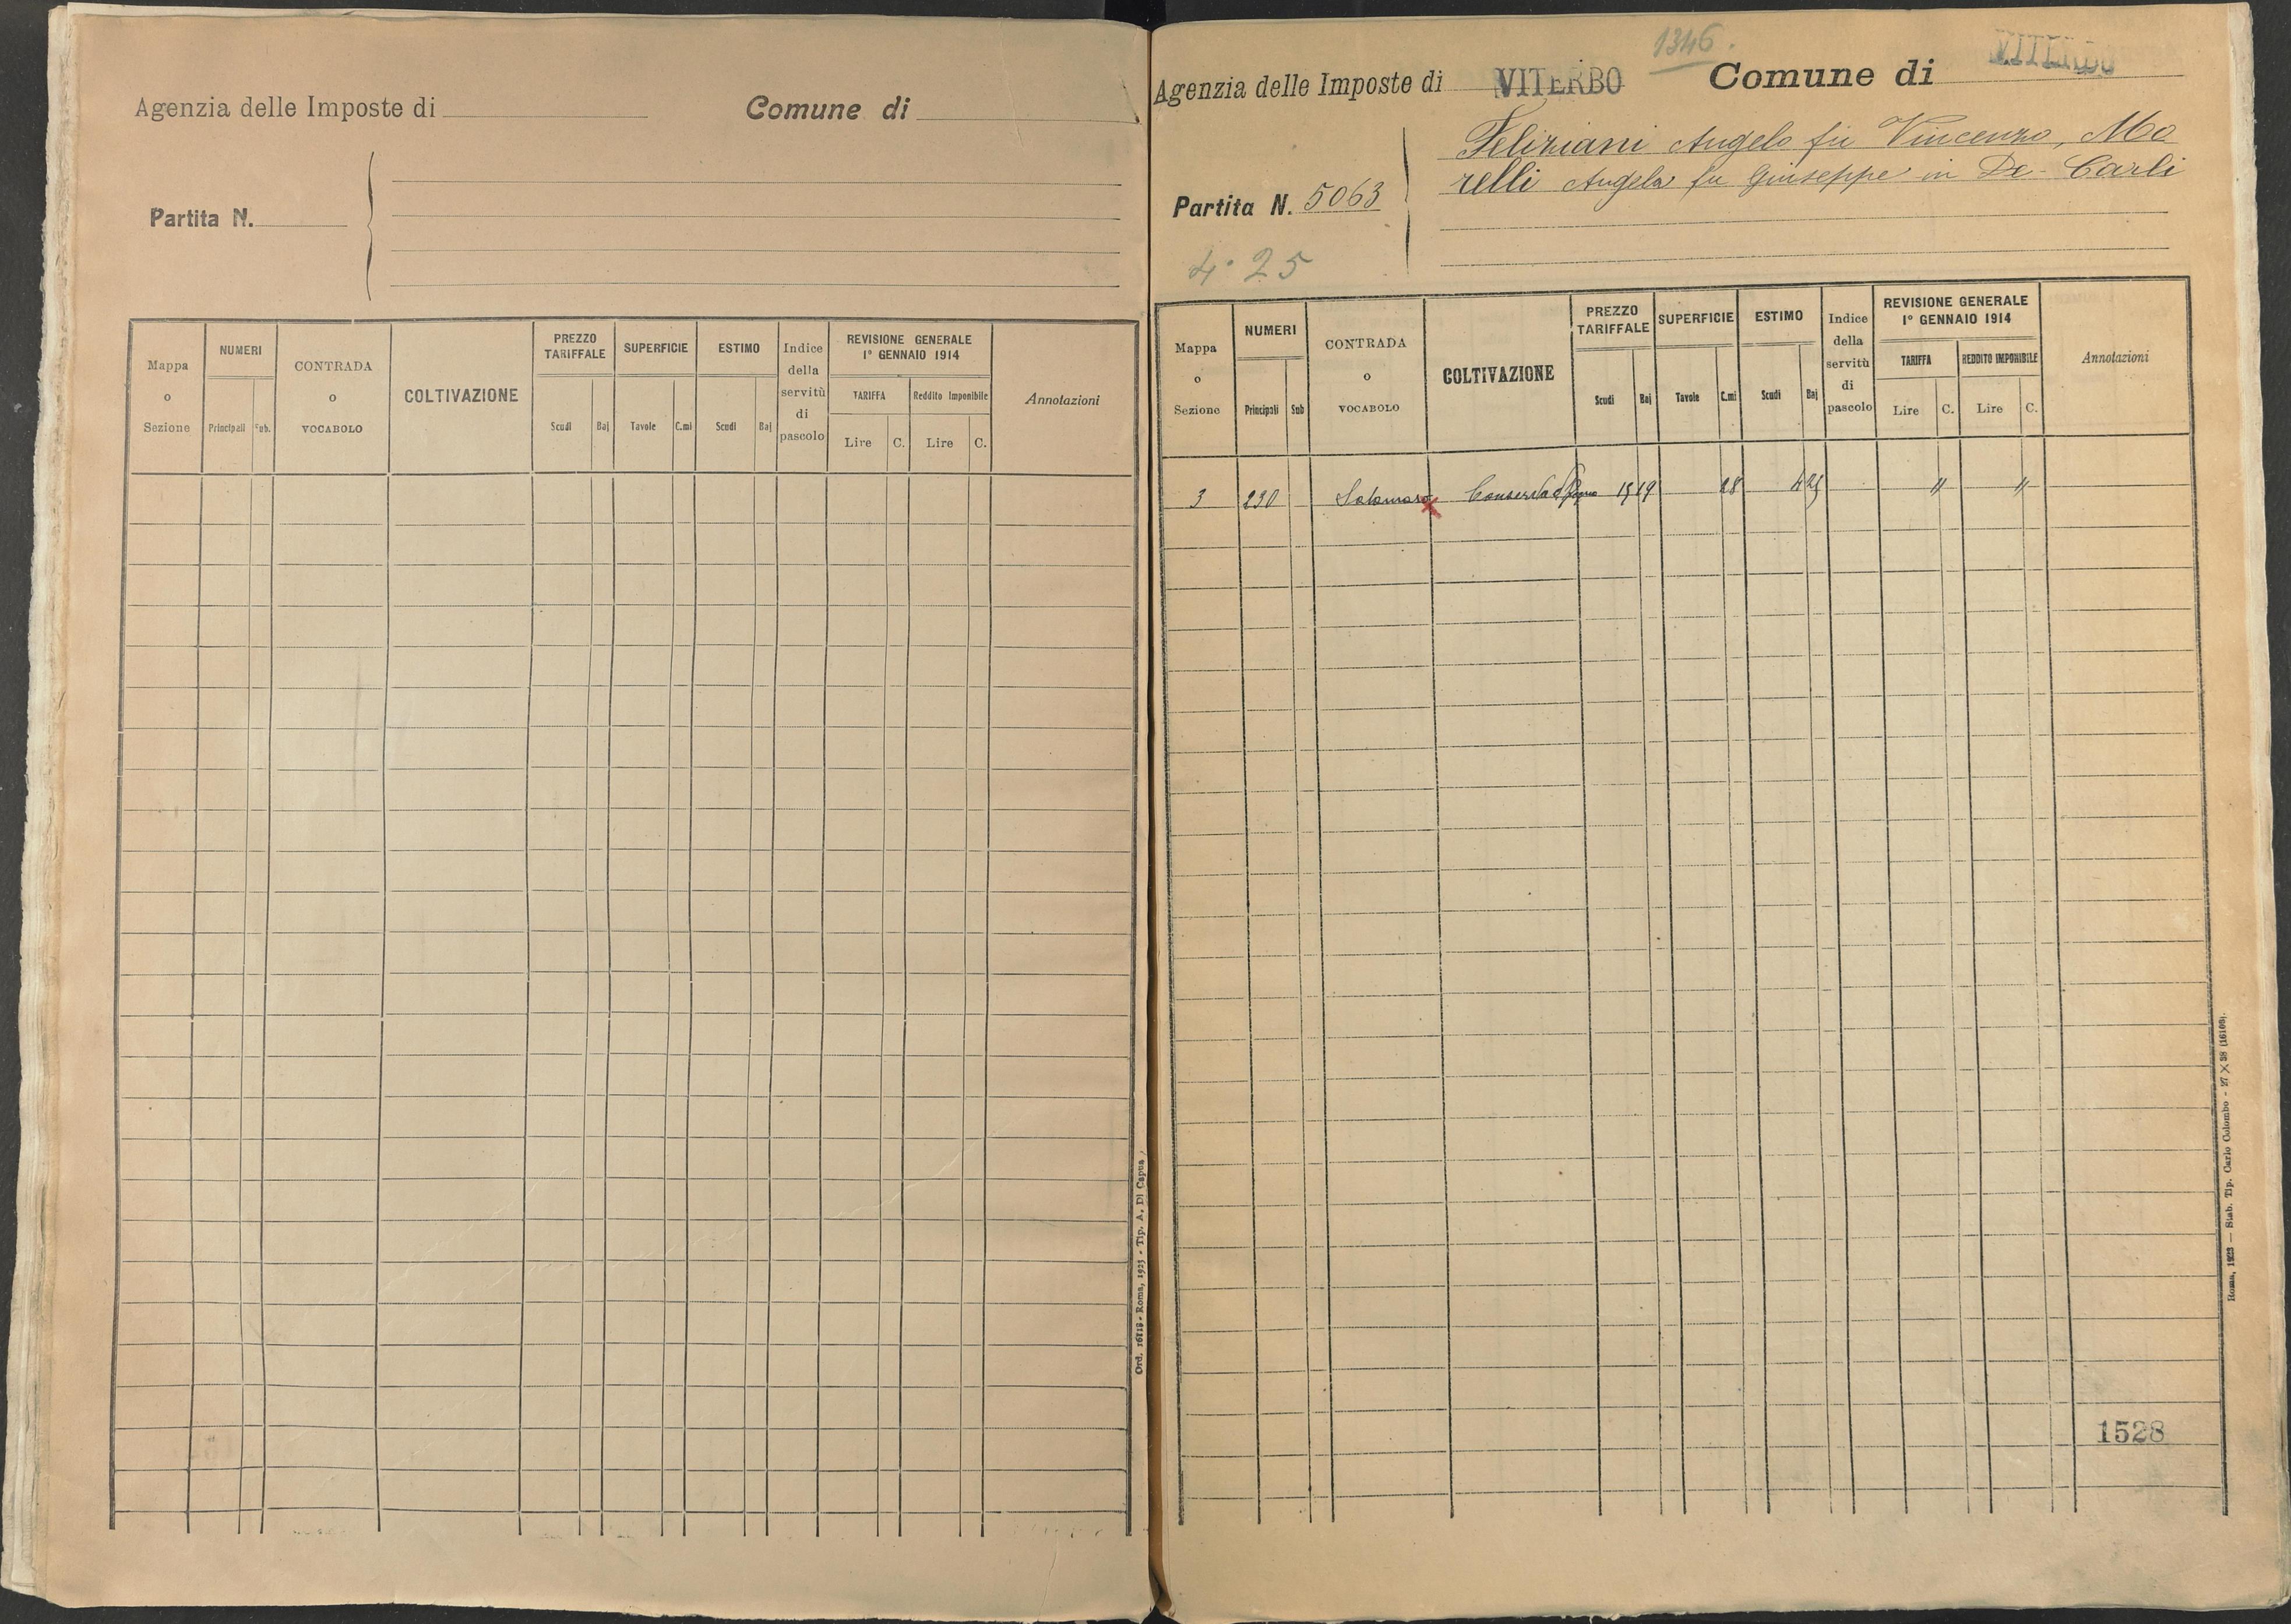 Agenzia delle Imposte di
Comune di
Partita N.
Mappa o Sezione
NUMERI
Principali
Sub.
CONTRADA o VOCABOLO
COLTIVAZIONE
PREZZO TARIFFALE
Scudi
Baj
SUPERFICIE
Tavole
C.mi
ESTIMO
Scudi
Baj
Indice della servitù di pascolo
REVISIONE GENERALE
1° GENNAIO 1914
TARIFFA
Lire
C.
Reddito Imponibile
Lire
C.
Annotazioni
Ord. 16118 - Roma, 1923 - Tip. A. Di Capua
1346.
Agenzia delle Imposte di VITERBO
Comune di VITERBO
Feliziani Angelo fu Vincenzo, Mo
relli Angela fu Giuseppe in De-Carli
Partita N. 5063
4.25
Mappa o Sezione
NUMERI
Principali
Sub
CONTRADA o VOCABOLO
COLTIVAZIONE
PREZZO TARIFFALE
Scudi
Baj
SUPERFICIE
Tavole
C.mi
ESTIMO
Scudi
Baj
Indice della servitù di pascolo
REVISIONE GENERALE
1° GENNAIO 1914
TARIFFA
Lire
C.
REDDITO IMPONIBILE
Lire
C.
Annotazioni
3 230 15 19 28 4 25 " "
1528
Roma, 1923 — Stab. Tip. Carlo Colombo - 27 X 38 (16105).